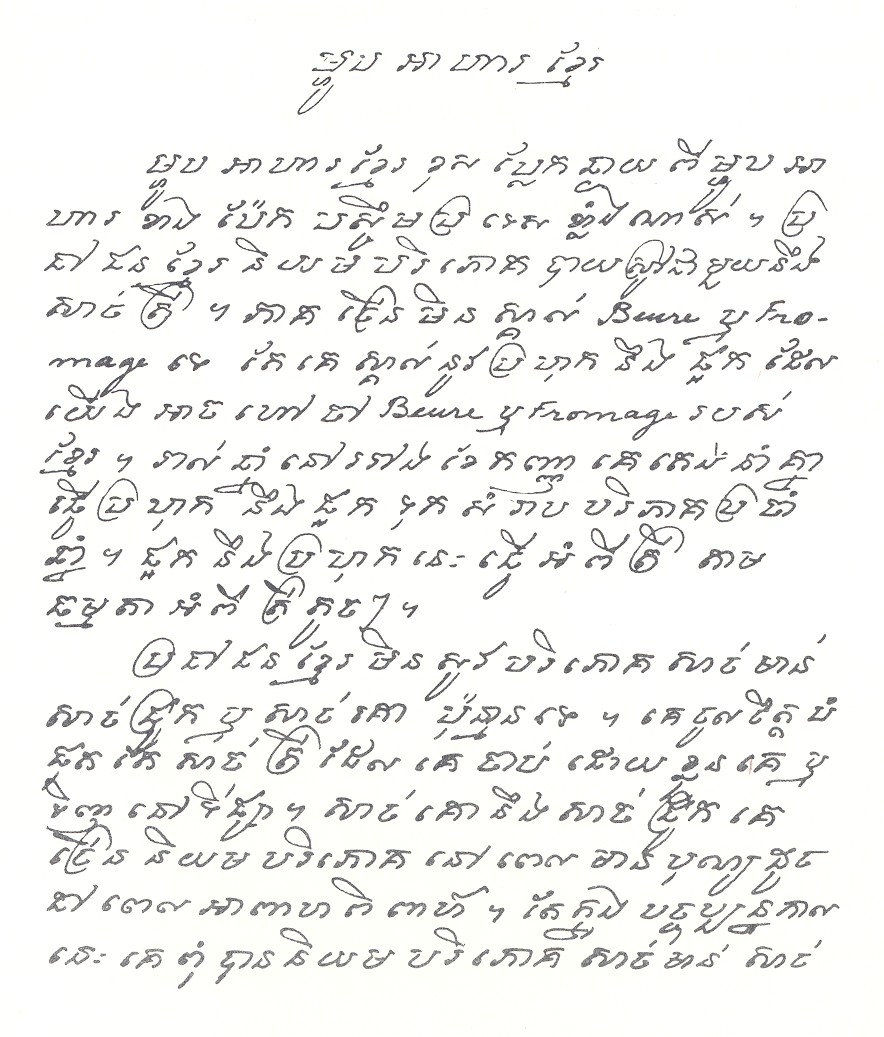 ម្ហូប អាហារ ខ្មែរ
ម្ហូប អាហារ ខ្មែរ ខុស ប្លែក ឆ្ងាយ ពី ម្ហូប អា
ហារ ខាង ប៉ែក បស្ចឹម ប្រទេស ខ្លាំង ណាស់ ។ ប្រ
ជាជន ខ្មែរ និយម បរិភោគ បាយ ស្រូវ ជាមួយនឹង
សាច់ ត្រី ។ ភាគ ច្រើន មិន ស្គាល់ Beurre ឬ Fro-
mage ទេ តែ គេ ស្គាល់ នូវ ប្រហុក នឹង ផ្អក ដែល
យើង អាច ហៅ ថា Beurre ឬ Fromage របស់
ខ្មែរ ។ រាល់ ឆ្នាំ នៅ រវាង ខែ កញ្ញា គេ តែងនាំ គ្នា
ធ្វើ ប្រហុក នឹង ផ្អក ទុក សំរាប់ បរិភោគ ប្រចាំ
ឆ្នាំ ។ ផ្អក នឹង ប្រហុក នេះ ធ្វើ អំពី ត្រី តាម
ធម្មតា អំពី ត្រី តូចៗ ។
ប្រជាជន ខ្មែរ មិន សូវ បរិភោគ សាច់ មាន់
សាច់ ជ្រូក ឬ សាច់ គោ ប៉ុន្មាន ទេ ។ គេ ចូលចិត្ត បំ
ផុត តែ សាច់ ត្រី ដែល គេ ចាប់ ដោយ ខ្លួន គេ ឬ
ទិញ នៅ ទីផ្សា ។ សាច់ គោ នឹង សាច់ ជ្រូក គេ
ច្រើន និយម បរិភោគ នៅ ពេល មាន បុណ្យ ដូច
ជា ពេល អាពាហ ពិពាហ៍ ។ តែ ក្នុង បច្ចុប្បន្នកាល
នេះ គេ ពុំ បាន និយម បរិភោគ សាច់ មាន់ សាច់